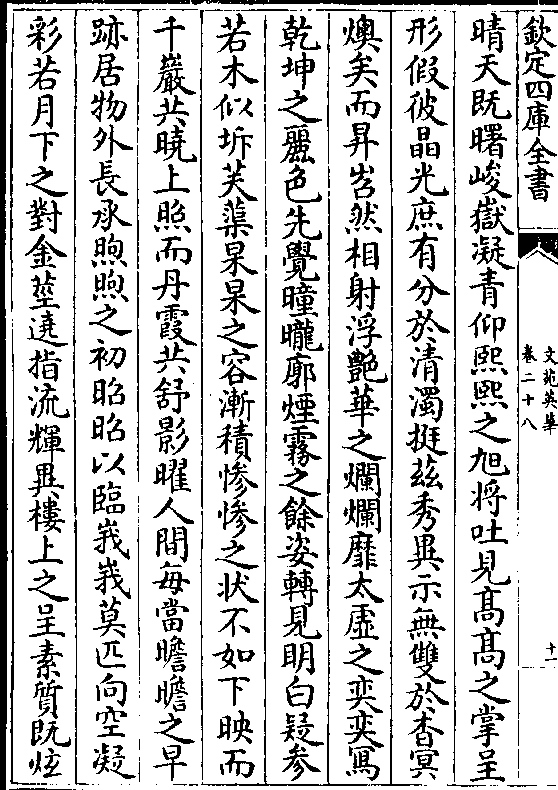 欽定四庫全書
文苑英華
卷二十八
十一
晴天既曙峻嶽凝青仰熙熙之旭將吐見髙髙之掌呈
形假彼晶光庶有分於清濁挺兹秀異示無雙於杳冥
燠矣而昇岧然相射浮艷華之爛爛靡太虛之奕奕冩
乾坤之麗色先覺曈曨廓煙霧之餘姿轉見明白疑参
若木似坼芙蕖杲杲之容漸積慘慘之状不如下映而
千巖共曉上照而丹霞共舒影曜人間每當曕曕之早
跡居物外長承煦煦之初昭昭以臨峩峩莫匹向空凝
彩若月下之對金莖遶指流輝異樓上之呈素質既炫